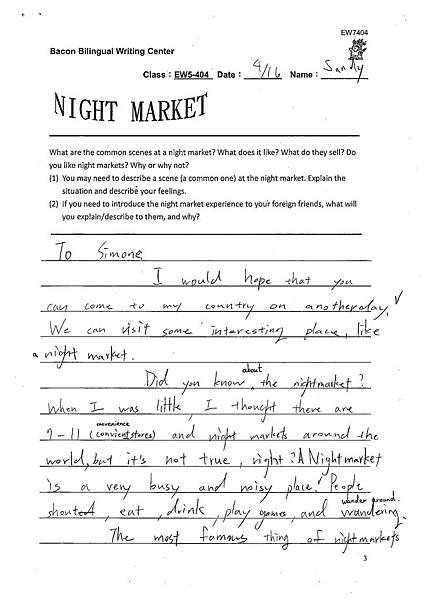 EW7404
Bacon Bilingual Writing Center
Class : EW5-404 Date : 4/16 Name : Sandy
NIGHT MARKET
What are the common scenes at a night market? What does it like? What do they sell? Do
you like night markets? Why or why not?
(1) You may need to describe a scene (a common one) at the night market. Explain the
situation and describe your feelings.
(2) If you need to introduce the night market experience to your foreign friends, what will
you explain/describe to them, and why?
To Simone
I would hope that you
can come to my country on anotherday.
We can visit some interesting place, like
a night market.
about
Did you know, the nightmarket?
When I was little, I thought there are
convenience
7-11 (convient stores) and night markets around the
world, but it's not true, right? A Nightmarket
is a very busy and noisy place! People
wander around.
shouted, eat, drink, play games, and wandering.
The most famous thing of nightmarkets
3